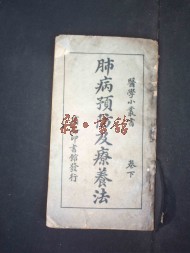 醫學小叢書
卷下
肺病預防及療養法
印書館發行